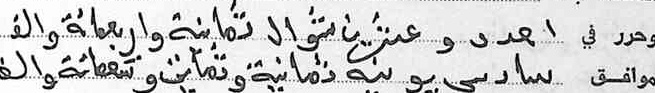 وحرر في احدى و عشرين شوال ثمانية واربعمائة والف
موافق سادس يونيه ثمانية وثمانين وتسعمائة والف